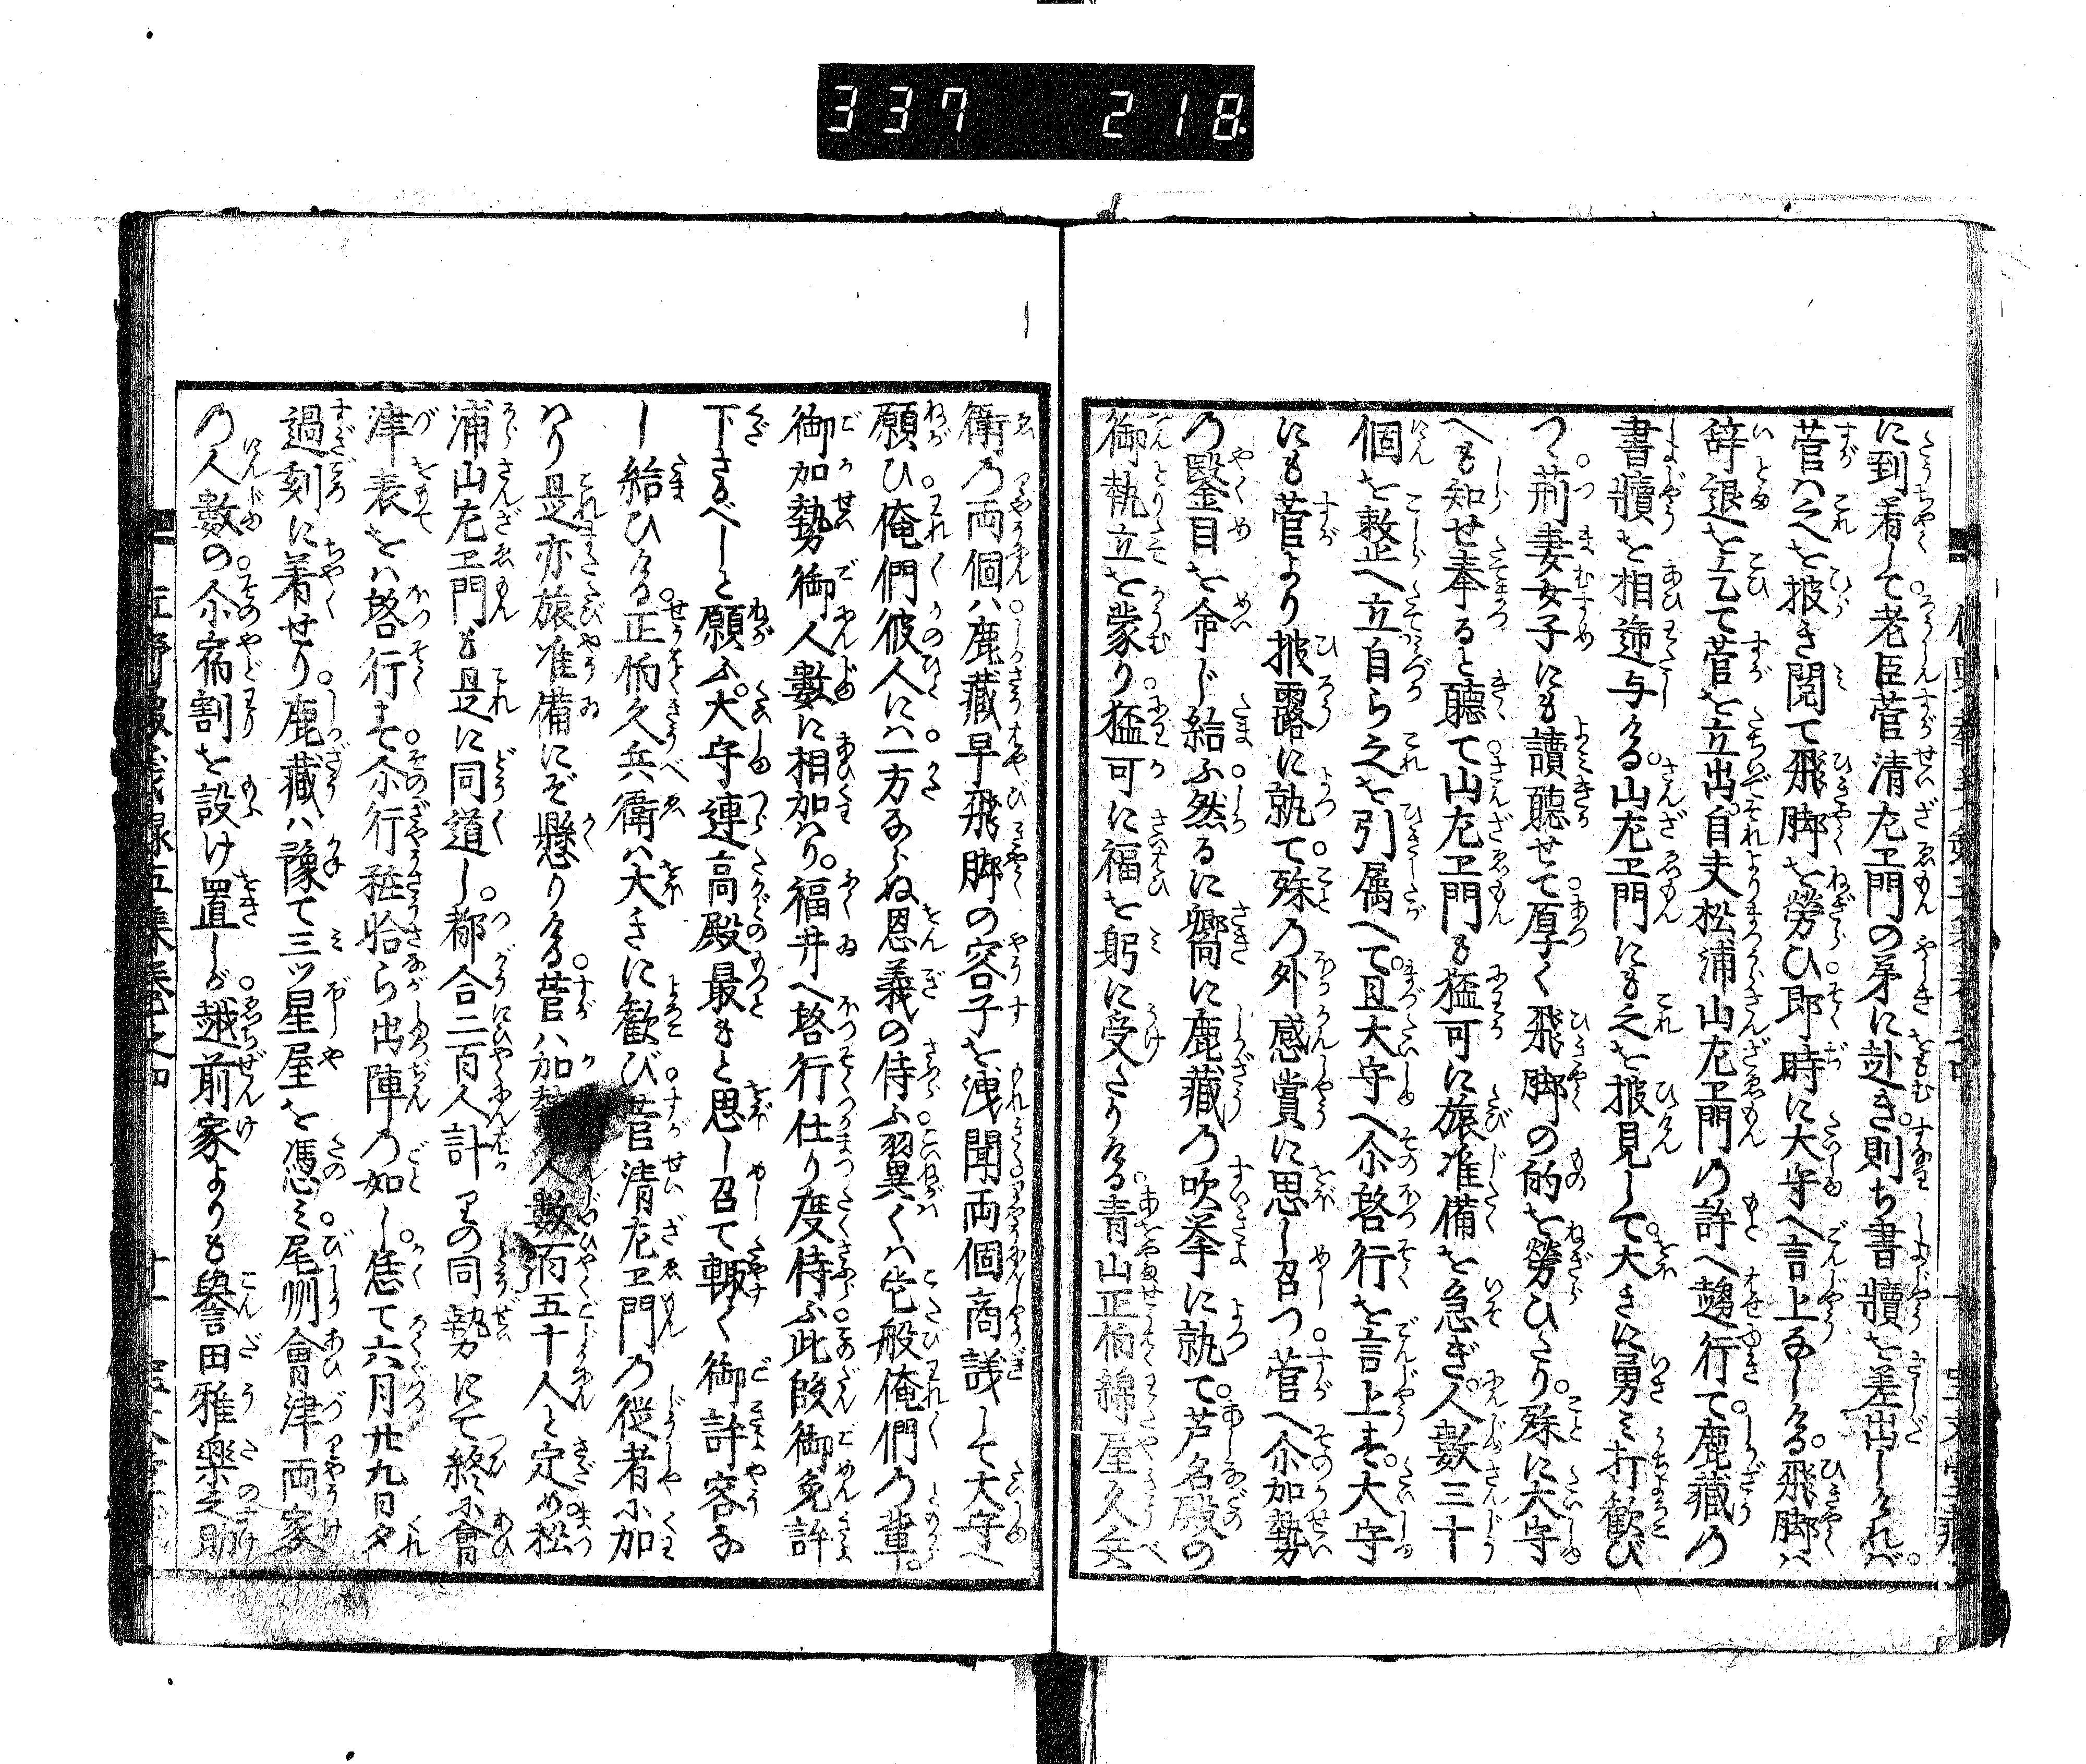 337 218
に到着して老臣菅清左エ門の茅に赴き。則ち書牘を差出しければ。
菅ハ之を披き閲て飛脚を勞ひ。即時に大守へ言上なしける。飛脚ハ
辞退を乞て菅を立出。自夫松浦山左エ門の許へ趨行て。鹿藏の
書牘を相遞与ける。山左エ門にも之を披見して。大きに勇ミ打歓び
つゝ。荊妻女子にも讀聽せて。厚く飛脚の的を勞ひたり。殊に大守
へも知せ奉ると聽て。山左エ門も猛可に旅准備を急ぎ。人數三十
個を整へ立自ら之を引属へて。且大守へ尒啓行を言上す。大守
にも菅より披露に執て。殊の外感賞に思し召つ。菅へ尒加勢
の鑿目を命じ給ふ。然るに嚮に鹿藏の吹挙に執て。芦名殿の
御執立を蒙り。猛可に福を躬に受たりける。青山正柄綿屋久兵
衛の両個ハ。鹿藏早飛脚の容子を洩聞。両個商議して大守へ
願ひ。俺們彼人にハ一方ならぬ恩義の侍ふ。翼くハ這般俺們の輩。
御加勢御人數に相加ハり。福井へ啓行仕り度侍ふ。此段御免許
下さるべしと願ふ。大守連高殿最もと思し召て。輙く御許容な
し給ひける。正柄久兵衛ハ大きに歓び。菅清左エ門の従者に加
ハり。是亦旅准備にぞ懸りける。菅ハ加勢人數百五十人と定め。松
浦山左エ門も是に同道し。都合二百人計りの同勢にて。終に會
津表をハ啓行す。尒行粧恰ら出陣の如し。恁て六月廿九日夕
過刻に着せり。鹿藏ハ豫て三ツ星屋を憑ミ。尾州會津両家
の人數の。尒宿割を設け置しが。越前家よりも譽田雅樂之助